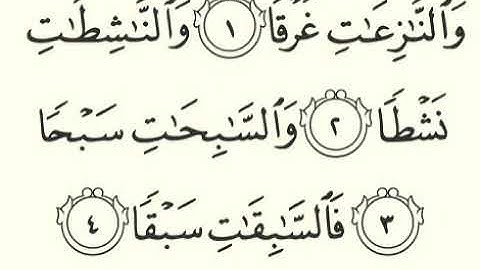 وَٱلنَّٰزِعَٰتِ غَرۡقٗا ١ وَٱلنَّٰشِطَٰتِ
نَشۡطٗا ٢ وَٱلسَّٰبِحَٰتِ سَبۡحٗا
٣ فَٱلسَّٰبِقَٰتِ سَبۡقٗا ٤